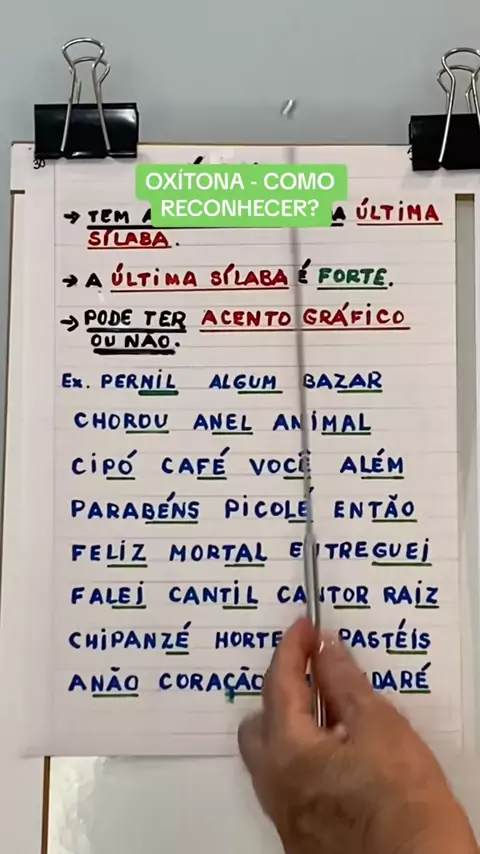 OXÍTONA - COMO
RECONHECER?
→ TEM A ÚLTIMA
SÍLABA.
→ A ÚLTIMA SÍLABA É FORTE.
→ PODE TER ACENTO GRÁFICO
OU NÃO.
Ex. PERNIL ALGUM BAZAR
CHOROU ANEL ANIMAL
CIPÓ CAFÉ VOCÊ ALÉM
PARABÉNS PICOLÉ ENTÃO
FELIZ MORTAL ENTREGUEI
FALEI CANTIL CANTOR RAIZ
CHIPANZÉ PASTÉIS
ANÃO CORAÇÃO